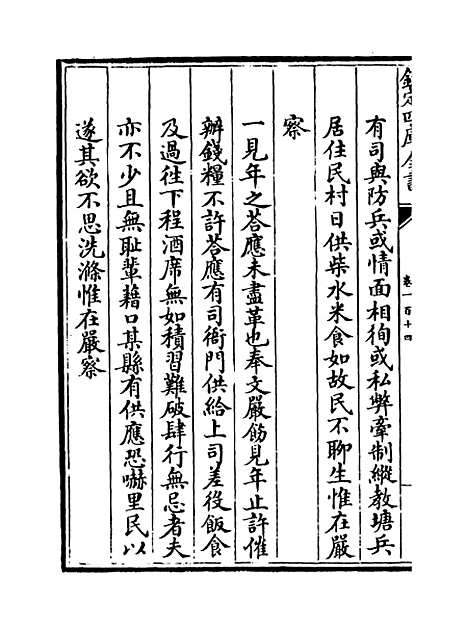 欽定四庫全書
卷一百十四
有司與防兵或情面相徇或私弊牽制縱教塘兵
居住民村日供柴水米食如故民不聊生惟在嚴
察
一見年之荅應未盡革也奉文嚴飭見年止許催
辦錢糧不許荅應有司衙門供給上司差役飯食
及過往下程酒席無如積習難破肆行無忌者夫
亦不少且無恥輩藉口某縣有供應恐嚇里民以
遂其欲不思洗滌惟在嚴察